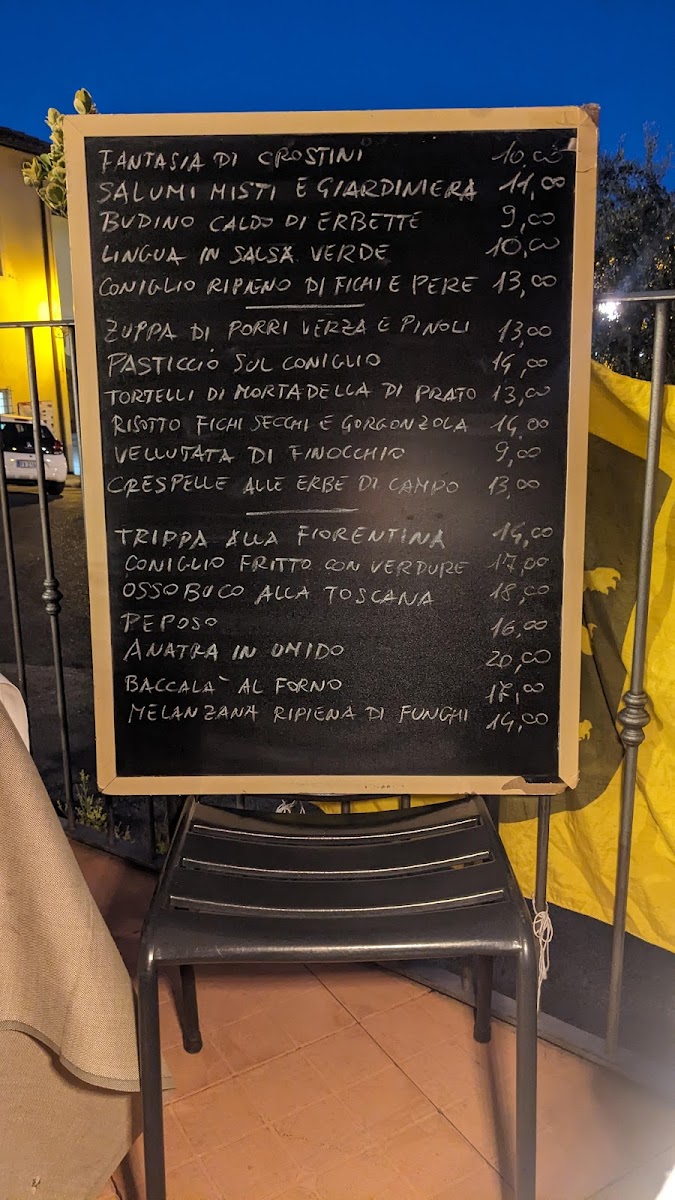 FANTASIA DI CROSTINI 10,00
SALUMI MISTI E GIARDINIERA 11,00
BUDINO CALDO DI ERBETTE 9,00
LINGUA IN SALSA VERDE 10,00
CONIGLIO RIPIENO DI FICHI E PERE 13,00
ZUPPA DI PORRI VERZA E PINOLI 13,00
PASTICCIO SUL CONIGLIO 14,00
TORTELLI DI MORTADELLA DI PRATO 13,00
RISOTTO FICHI SECCHI E GORGONZOLA 14,00
VELLUTATA DI FINOCCHIO 9,00
CRESPELLE ALLE ERBE DI CAMPO 13,00
TRIPPA ALLA FIORENTINA 14,00
CONIGLIO FRITTO CON VERDURE 17,00
OSSOBUCO ALLA TOSCANA 18,00
PEPOSO 16,00
ANATRA IN UMIDO 20,00
BACCALA` AL FORNO 17,00
MELANZANA RIPIENA DI FUNGHI 14,00